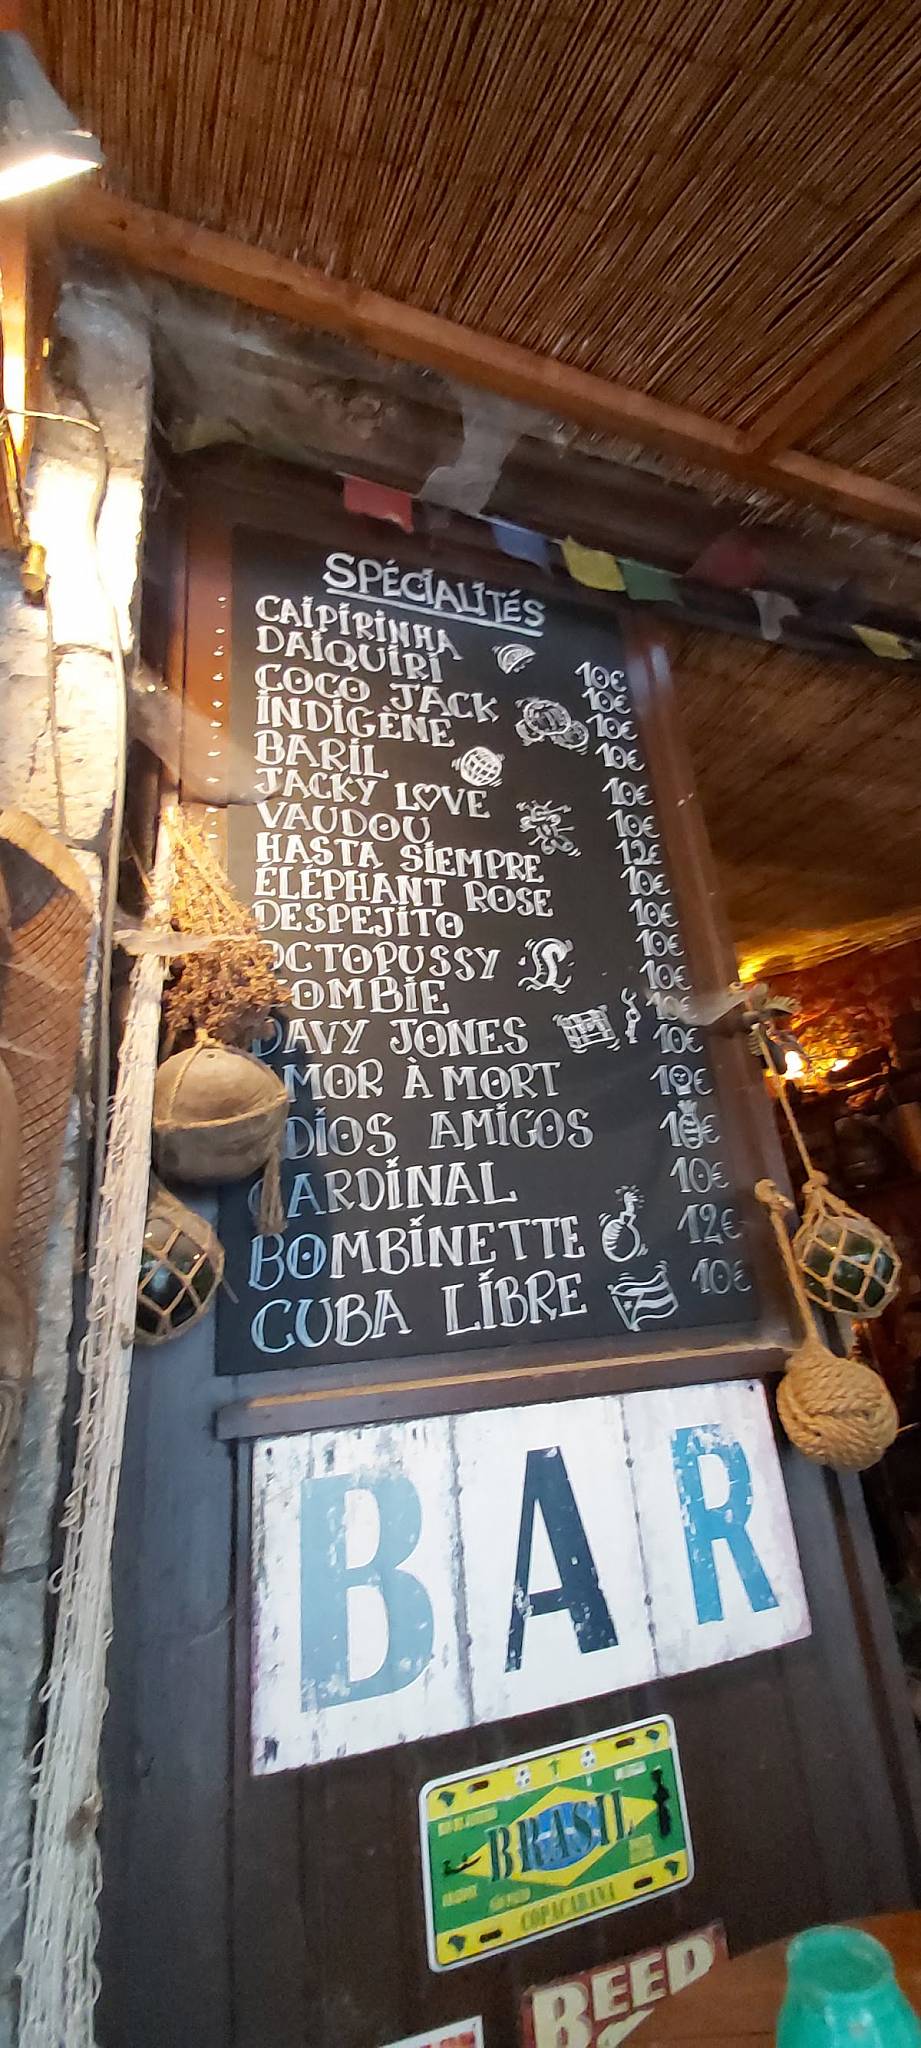 SPÉCIALITÉS
CAIPIRINHA 10€
DAIQUIRI 10€
COCO JACK 10€
INDIGÈNE 10€
BARIL 10€
JACKY LOVE 10€
VAUDOU 12€
HASTA SIEMPRE 10€
ÉLÉPHANT ROSE 10€
DESPEJITO 10€
OCTOPUSSY 10€
ZOMBIE 10€
DAVY JONES 10€
AMOR À MORT 10€
ADIOS AMIGOS 10€
CARDINAL 10€
BOMBINETTE 12€
CUBA LIBRE 10€
BAR
BRASIL
COPACABANA
BEED